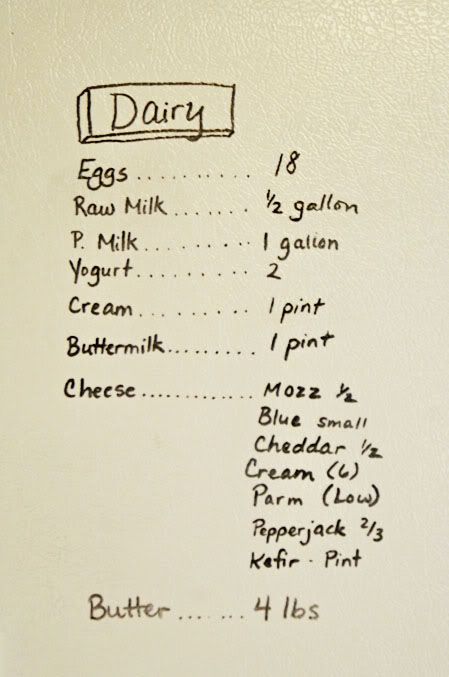 Dairy
Eggs .......... 18
Raw Milk ....... ½ gallon
P. Milk .......... 1 gallon
Yogurt ......... 2
Cream ......... 1 pint
Buttermilk ......... 1 pint
Cheese ............ Mozz ½
Blue small
Cheddar ½
Cream (6)
Parm (Low)
Pepperjack 2/3
Kefir · Pint
Butter ....... 4 lbs